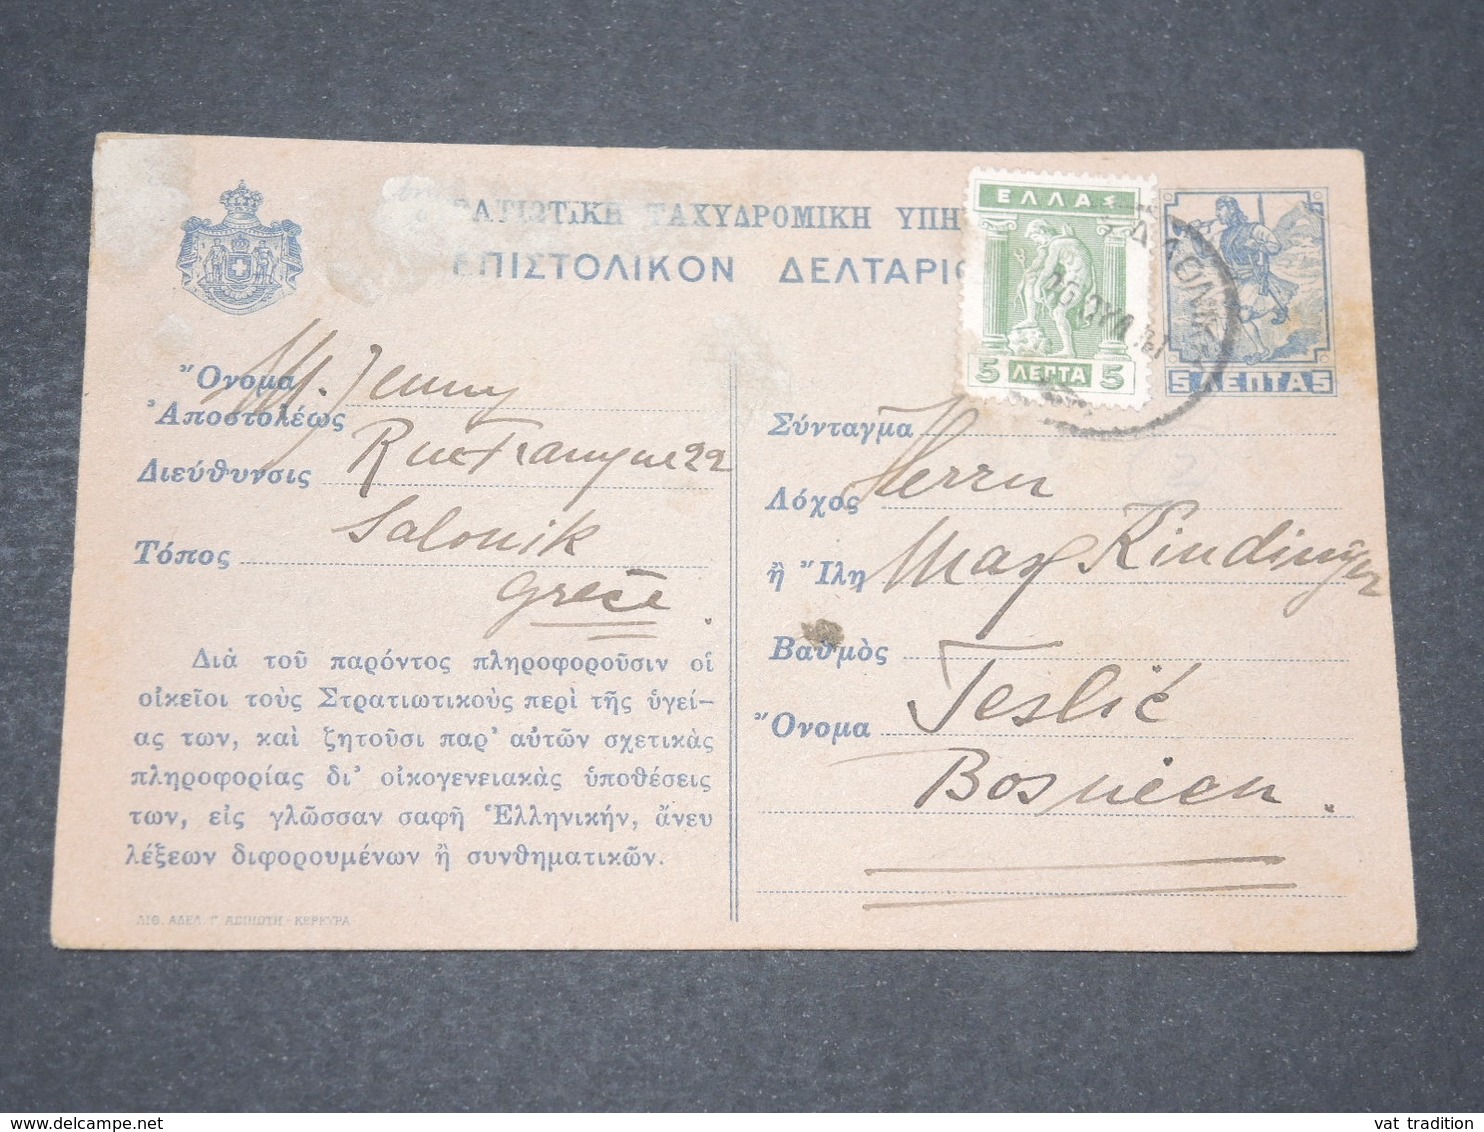 ΡΑΤΙΩΤΙΚΗ ΤΑΧΥΔΡΟΜΙΚΗ ΥΠΗ
ΕΠΙΣΤΟΛΙΚΟΝ ΔΕΛΤΑΡΙΟ
ΕΛΛΑΣ
5 ΛΕΠΤΑ 5
5 ΛΕΠΤΑ 5
Ὄνομα
Ἀποστολέως
M. Jenny
Διεύθυνσις Rue Franque 22
Τόπος Salonik
Grece.
Διὰ τοῦ παρόντος πληροφοροῦσιν οἱ
οἰκεῖοι τοὺς Στρατιωτικοὺς περὶ τῆς ὑγεί-
ας των, καὶ ζητοῦσι παρ' αὐτῶν σχετικὰς
πληροφορίας δι' οἰκογενειακὰς ὑποθέσεις
των, εἰς γλῶσσαν σαφῆ Ἑλληνικήν, ἄνευ
λέξεων διφορουμένων ἢ συνθηματικῶν.
ΛΙΘ. ΑΔΕΛ. Γ. ΑΣΠΙΩΤΗ - ΚΕΡΚΥΡΑ
Σύνταγμα
Herrn
Λόχος
ἢ Ἴλη Max Kindinger
Βαθμὸς
Teslić
Ὄνομα
Bosnien.
vat tradition